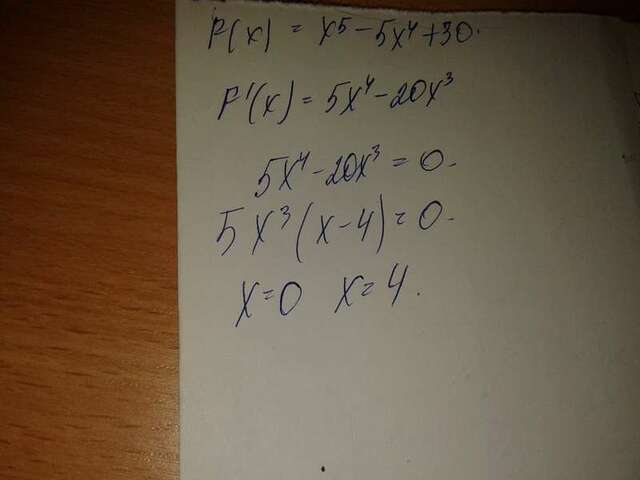 F(x) = x⁵ - 5x⁴ + 30.
F'(x) = 5x⁴ - 20x³
5x⁴ - 20x³ = 0.
5x³(x-4) = 0.
x=0 x=4.